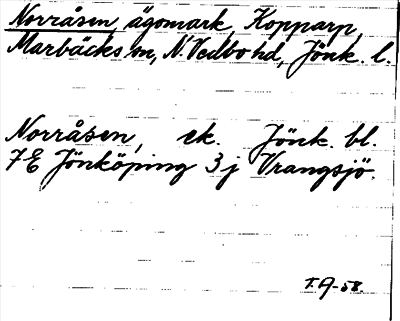 Norråsen, ägomark, Kopparp,
Marbäcks sn, N. Vedbo hd, Jönk. l.
Norråsen, ek. Jönk. bl.
7E Jönköping 3j Vrangsjö.
T.A-58.